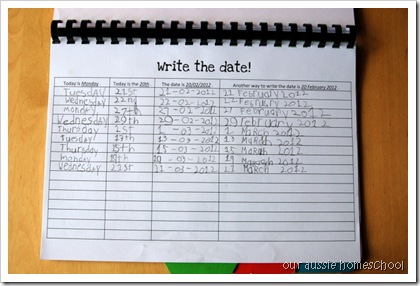 Write the date!
Today is Monday. Today is the 20th. The date is 20/02/2012 Another way to write the date is 20 February 2012
Tuesday 21st 21-02-2012 21 February 2012
Wednesday 22nd 22-02-2012 22 February 2012
Monday 27th 27-02-2012 27 February 2012
Wednesday 29th 29-02-2012 29 February 2012
Thursday 1st 1-03-2012 1 March 2012
Tuesday 13-03-2012 13 March 2012
Thursday 15th 15-03-2012 15 March 2012
monday 19th 19-03-2012 19 March 2012
Wednesday 21st 21-03-2012 21 March 2012
our aussie homeschool